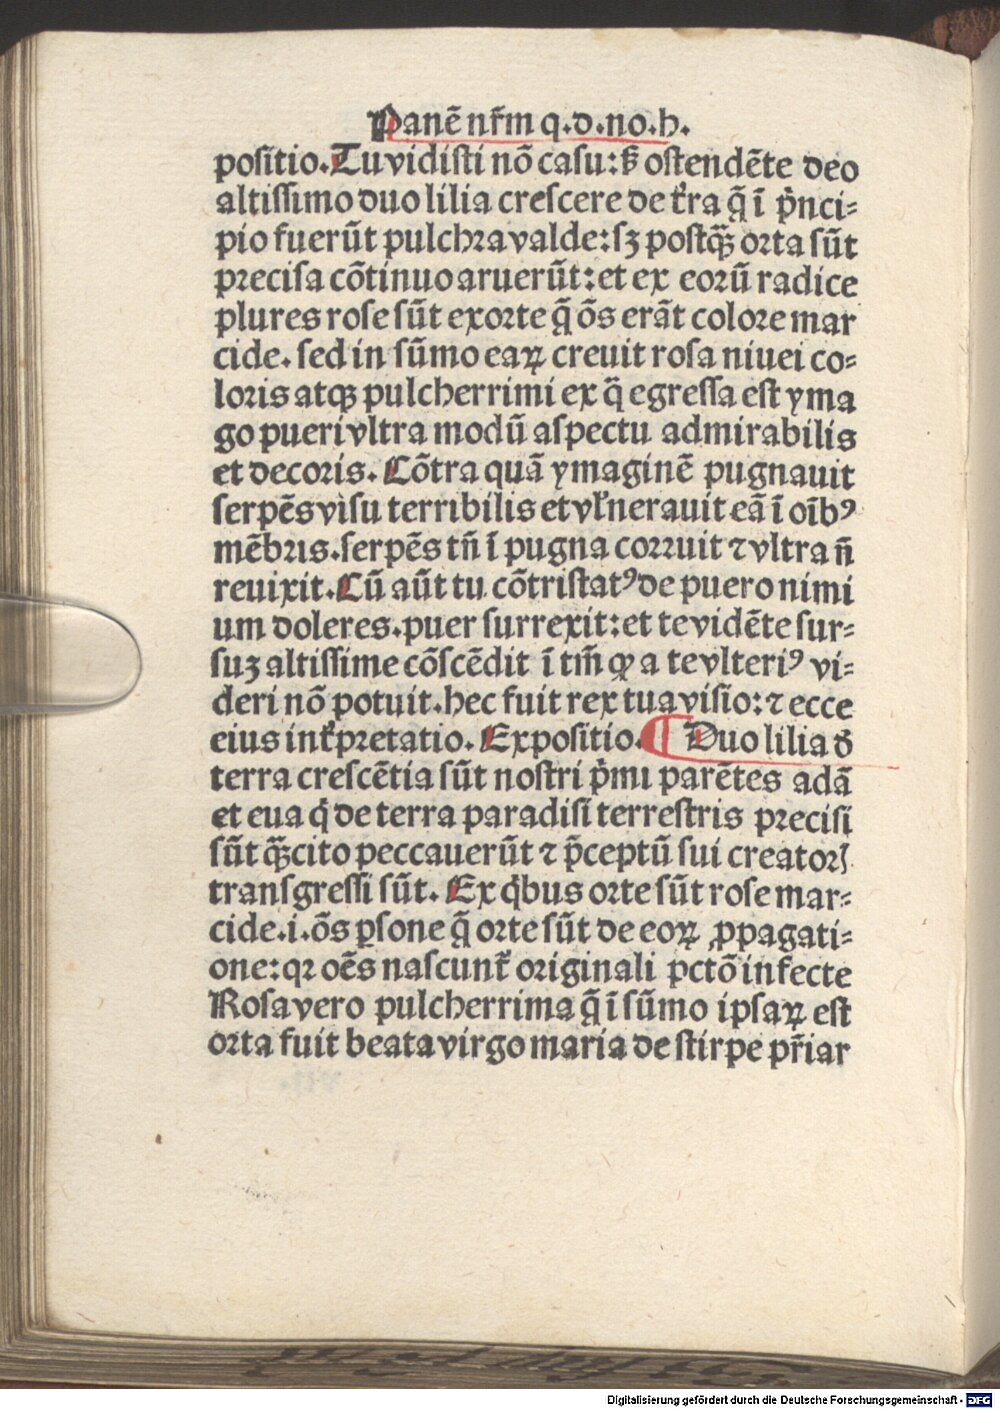 Panē nr̄m q.d.no.h.
positio. Tu vidisti nō casu: sꝫ ostendēte deo
altissimo duo lilia crescere de tr̄ra q̄ ī p̄nci-
pio fuerūt pulchra valde: sꝫ postqꝫ̄ orta sūt
precisa cōtinuo aruerūt: et ex eorū radice
plures rose sūt exorte q̄ ōs erāt colore mar
cide. sed in sūmo eaꝝ creuit rosa niuei co-
loris atqꝫ pulcherrimi ex q̄ egressa est yma
go pueri vltra modū aspectu admirabilis
et decoris. Cōtra quā ymaginē pugnauit
serpēs visu terribilis et vl̄nerauit eā ī oībꝰ
mēbris. serpēs tn̄ ī pugna corruit ⁊ vltra n̄
reuixit. Cū aūt tu cōtristatꝰ de puero nimi
um doleres. puer surrexit: et te vidēte sur-
suꝫ altissime cōscēdit ī tm̄ ꝙ a te vlteriꝰ vi-
deri nō potuit. hec fuit rex tua visio: ⁊ ecce
eius intp̄retatio. Expositio. ¶ Duo lilia đ
terra crescētia sūt nostri p̄mi parētes adā
et eua q̇ de terra paradisi terrestris precisi
sūt qꝫ̄cito peccauerūt ⁊ p̄ceptū sui creatorꝭ
transgressi sūt. Ex q̇bus orte sūt rose mar-
cide. i. ōs ꝑsone q̄ orte sūt de eoꝝ ꝓpagati-
one: qꝛ oēs nascunt᷑ originali pctō infecte
Rosa vero pulcherrima q̄ ī sūmo ipsaꝝ est
orta fuit beata virgo maria de stirpe pr̄iar
Digitalisierung gefördert durch die Deutsche Forschungsgemeinschaft - DFG